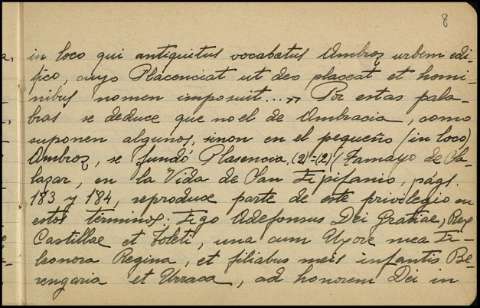 8
in loco qui antiquitus vocabatus Ambroz urbem edi-
fico, cuyo Placenciat ut deo placeat et homi-
nibus nomen imposuit...» Por estas pala-
bras se deduce que no el de Ambracia, como
suponen algunos, sinon en el pequeño (in loco)
Ambroz, se fundó Plasencia. (2)-(2)/ Tamayo de Sa-
lazar, en la Vida de San Epifanio, págs.
183 y 184, reproduce parte de este privilegio en
estos términos: Ego Adefonsus Dei Gratiae, Rex
Castillae et Toleti, una cum Uxore mea E-
leonora Regina, et filiabus meis infantis Be-
rengaria et Urraca, ad honorem Dei in